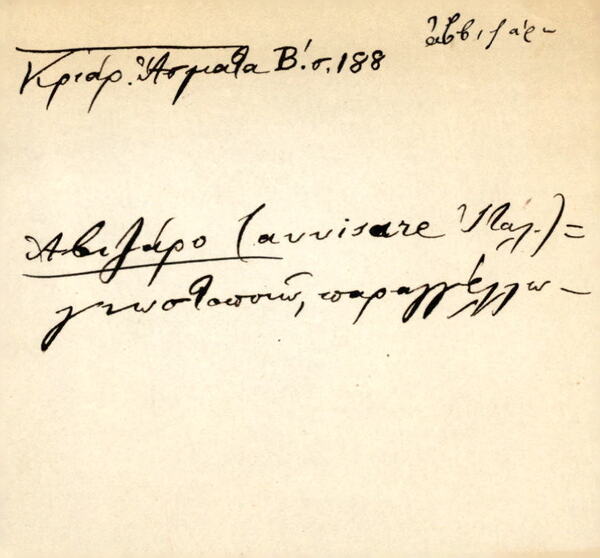 ἀββιζάρω
Κριάρ. Ἄσματα Β΄. σ. 188
Ἀβιζάρο (avvisare Ἰταλ.) =
γνωστοποιῶ, παραγγέλλω –